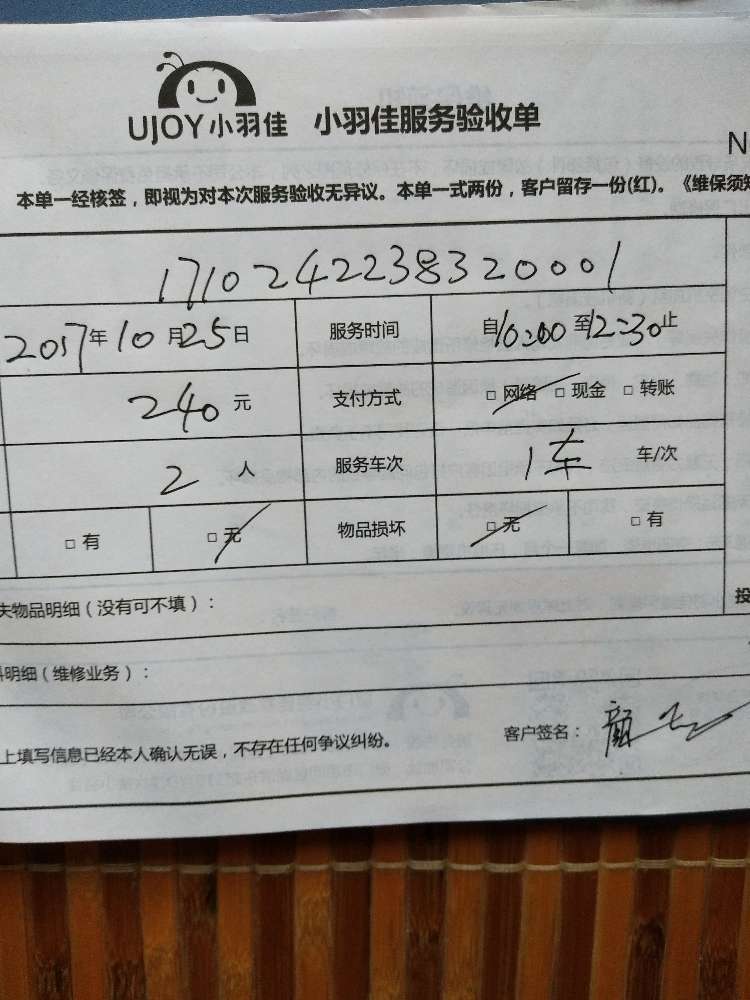 UJOY小羽佳 小羽佳服务验收单
N
本单一经核签，即视为对本次服务验收无异议。本单一式两份，客户留存一份(红)。《维保须知
1710242238320001
2017年10月25日 服务时间 自10:00至12:30止
240元 支付方式 □ 网络 □ 现金 □ 转账
2人 服务车次 1车 车/次
□ 有 □ 无 物品损坏 □ 无 □ 有
失物品明细（没有可不填）：
投
料明细（维修业务）：
上填写信息已经本人确认无误，不存在任何争议纠纷。 客户签名：颜